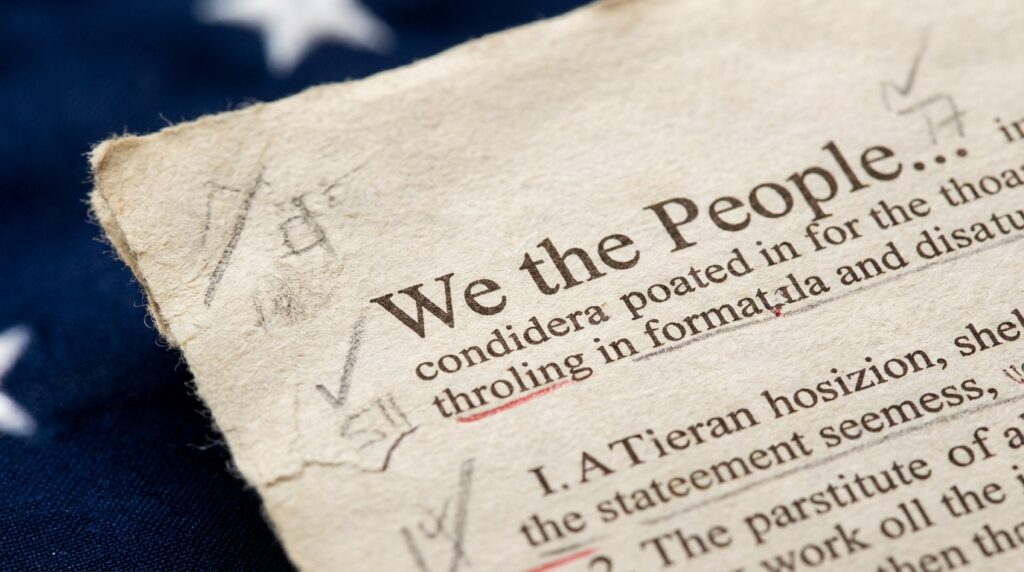 We the People... in
condidera poated in for the thoa
throling in formatıla and disatu
I. A Tieran hosizion, shel
the stateement seemess,
2. The parstitute of a
work oll the i
then tho
17
511
14